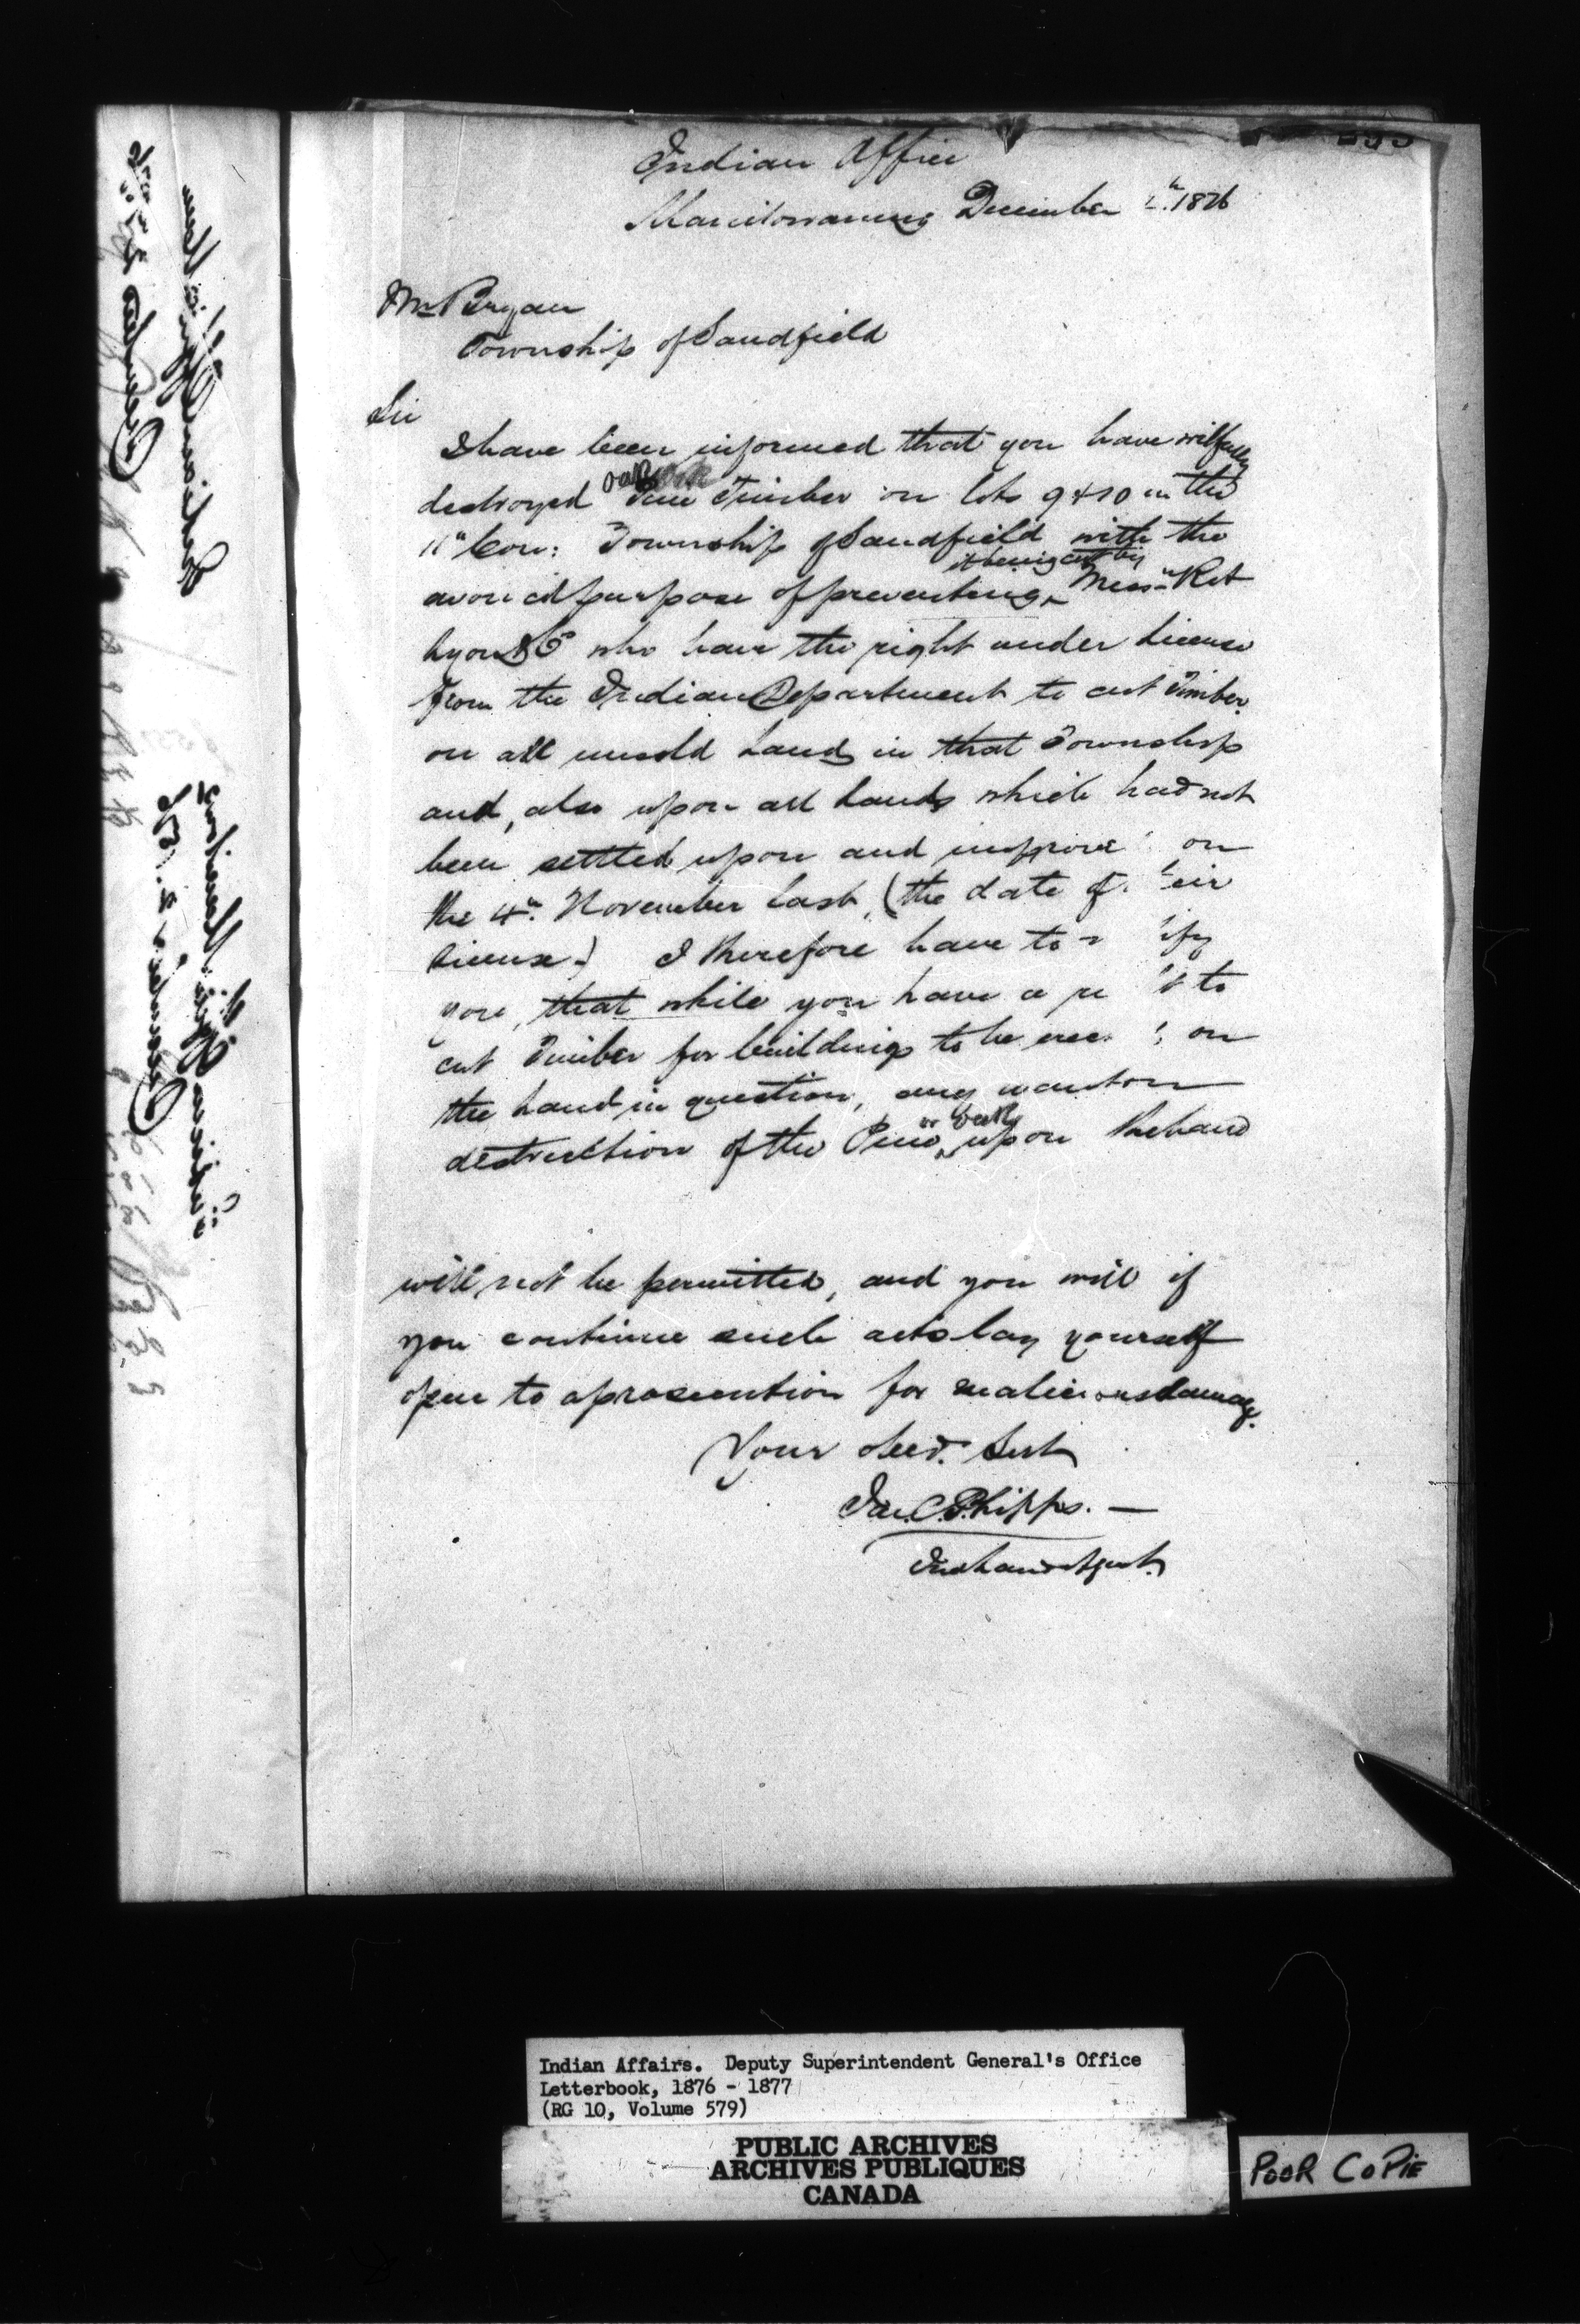 Indian Office
Manitowaning December 1876
Mr Bryan
Township of Sandfield
Sir
I have been informed that you have wilfully
destroyed Oak Timber on lots 9 & 10 in the
11th Con: Township of Sandfield with the
avowed purpose of preventing it being cut by Messrs Rbt
Lyon & Co who have the right under License
from the Indian Department to cut Timber
on all unsold Lands in that Township
and, also upon all Lands which had not
been settled upon and improve on
the 4th November last, (the date of eir
License.) I therefore have to ify
you, that while you have a to
cut Timber for buildings to be on
the Land in question, any wanton
destruction of the Pine or Oak upon the Land
will not be permitted, and you will if
you continue such acts lay yourself
open to a prosecution for malicious damage.
Your obed. Servt
Jas. C. Phipps. —
Ind Land Agent.
Indian Affairs. Deputy Superintendent General's Office
Letterbook, 1876 - 1877
(RG 10, Volume 579)
PUBLIC ARCHIVES
ARCHIVES PUBLIQUES
CANADA
POOR COPIE